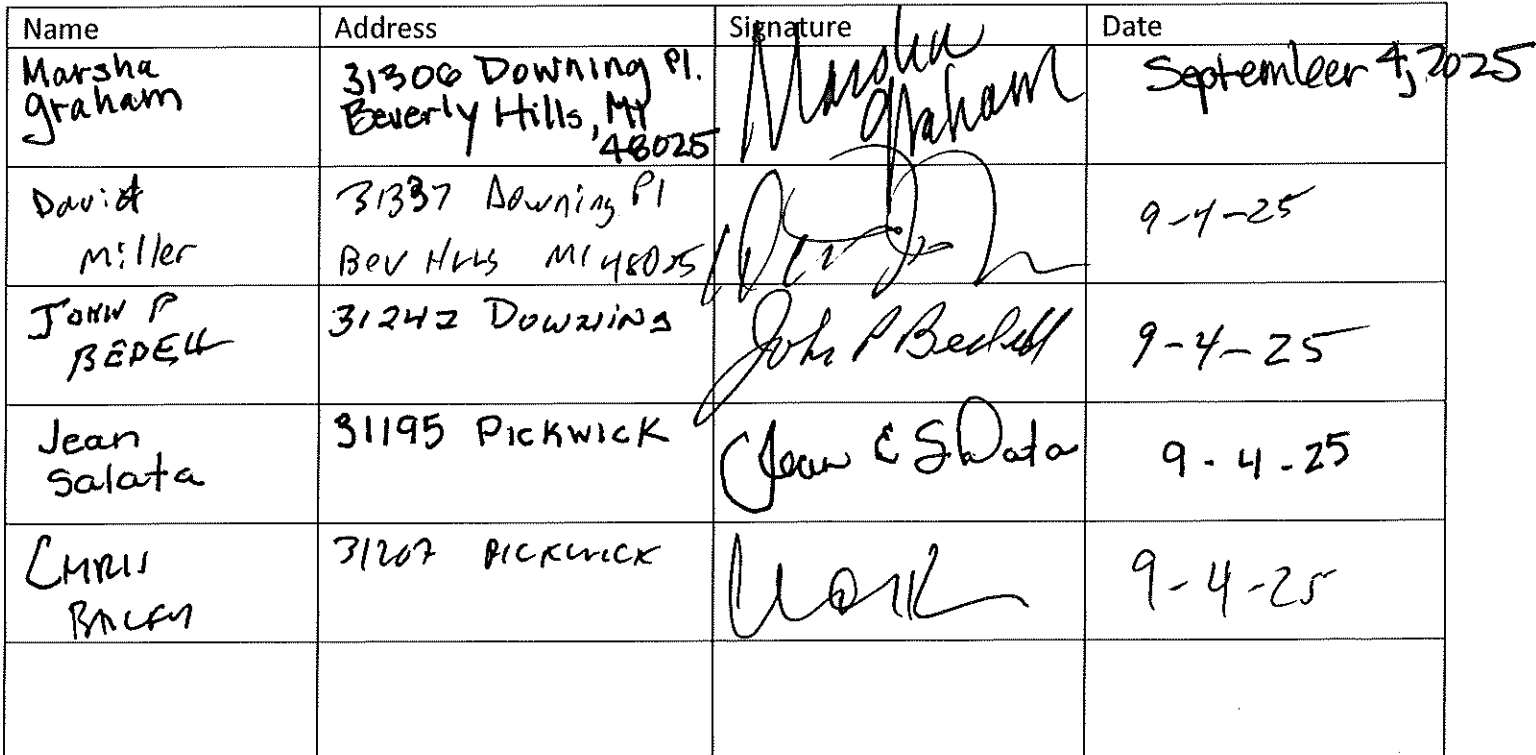 Name Address Signature Date
Marsha Graham 31306 Downing Pl. Beverly Hills, MI 48025 Marsha Graham September 4, 2025
David Miller 31337 Downing Pl Bev Hills MI 48025 9-4-25
John P BEDELL 31242 Downing John P Bedell 9-4-25
Jean Salata 31195 PICKWICK Jean E Salata 9-4-25
CHRIS 31207 PICKWICK 9-4-25